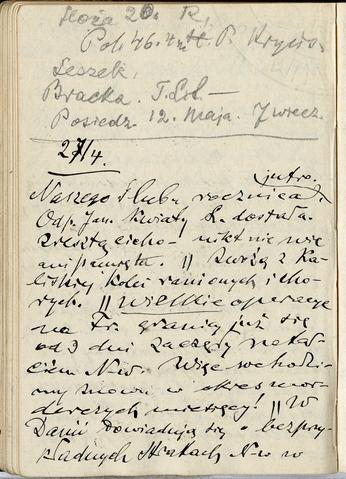 Hoża 20. R.
Pol. 46.4 m. H. P. Krycis.
Leszek,
Bracka. T.L.L —
Posiedz. 12. Maja. 7 wiecz.
27/4.
jutro.
Naszego ślubu rocznica.
Odp. Jan. kwiaty L. dostała.
zresztą cicho – nikt nie wie
ani pamięta. || zwożą z Ka-
liskiej kolei rannych i cho-
rych. || wielkie operacye
na Fr. granicy już się
od 3 dni zaczęły natar-
ciem N-w. Więc wchodzi-
my znowu w okres mor-
derczych miesięcy! || W
Danii dowiadują się o bezprzy-
kładnych stratach N-w w